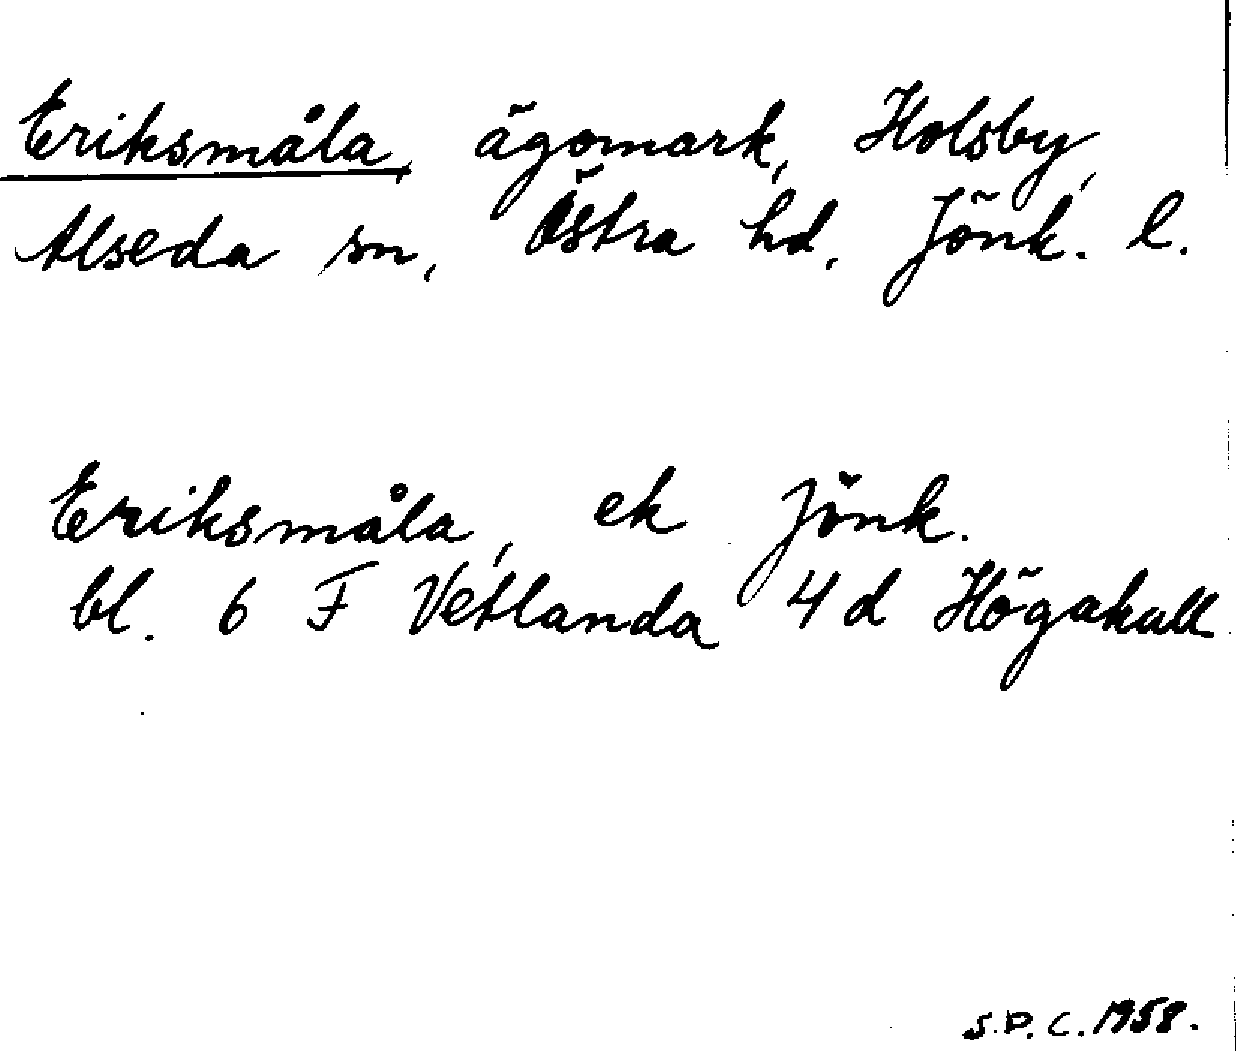 Eriksmåla, ägomark, Holsby,
Alseda sn, Östra hd, Jönk. l.
Eriksmåla, ek Jönk.
bl. 6 F Vetlanda 4d Högakull
S.P.C. 1958.